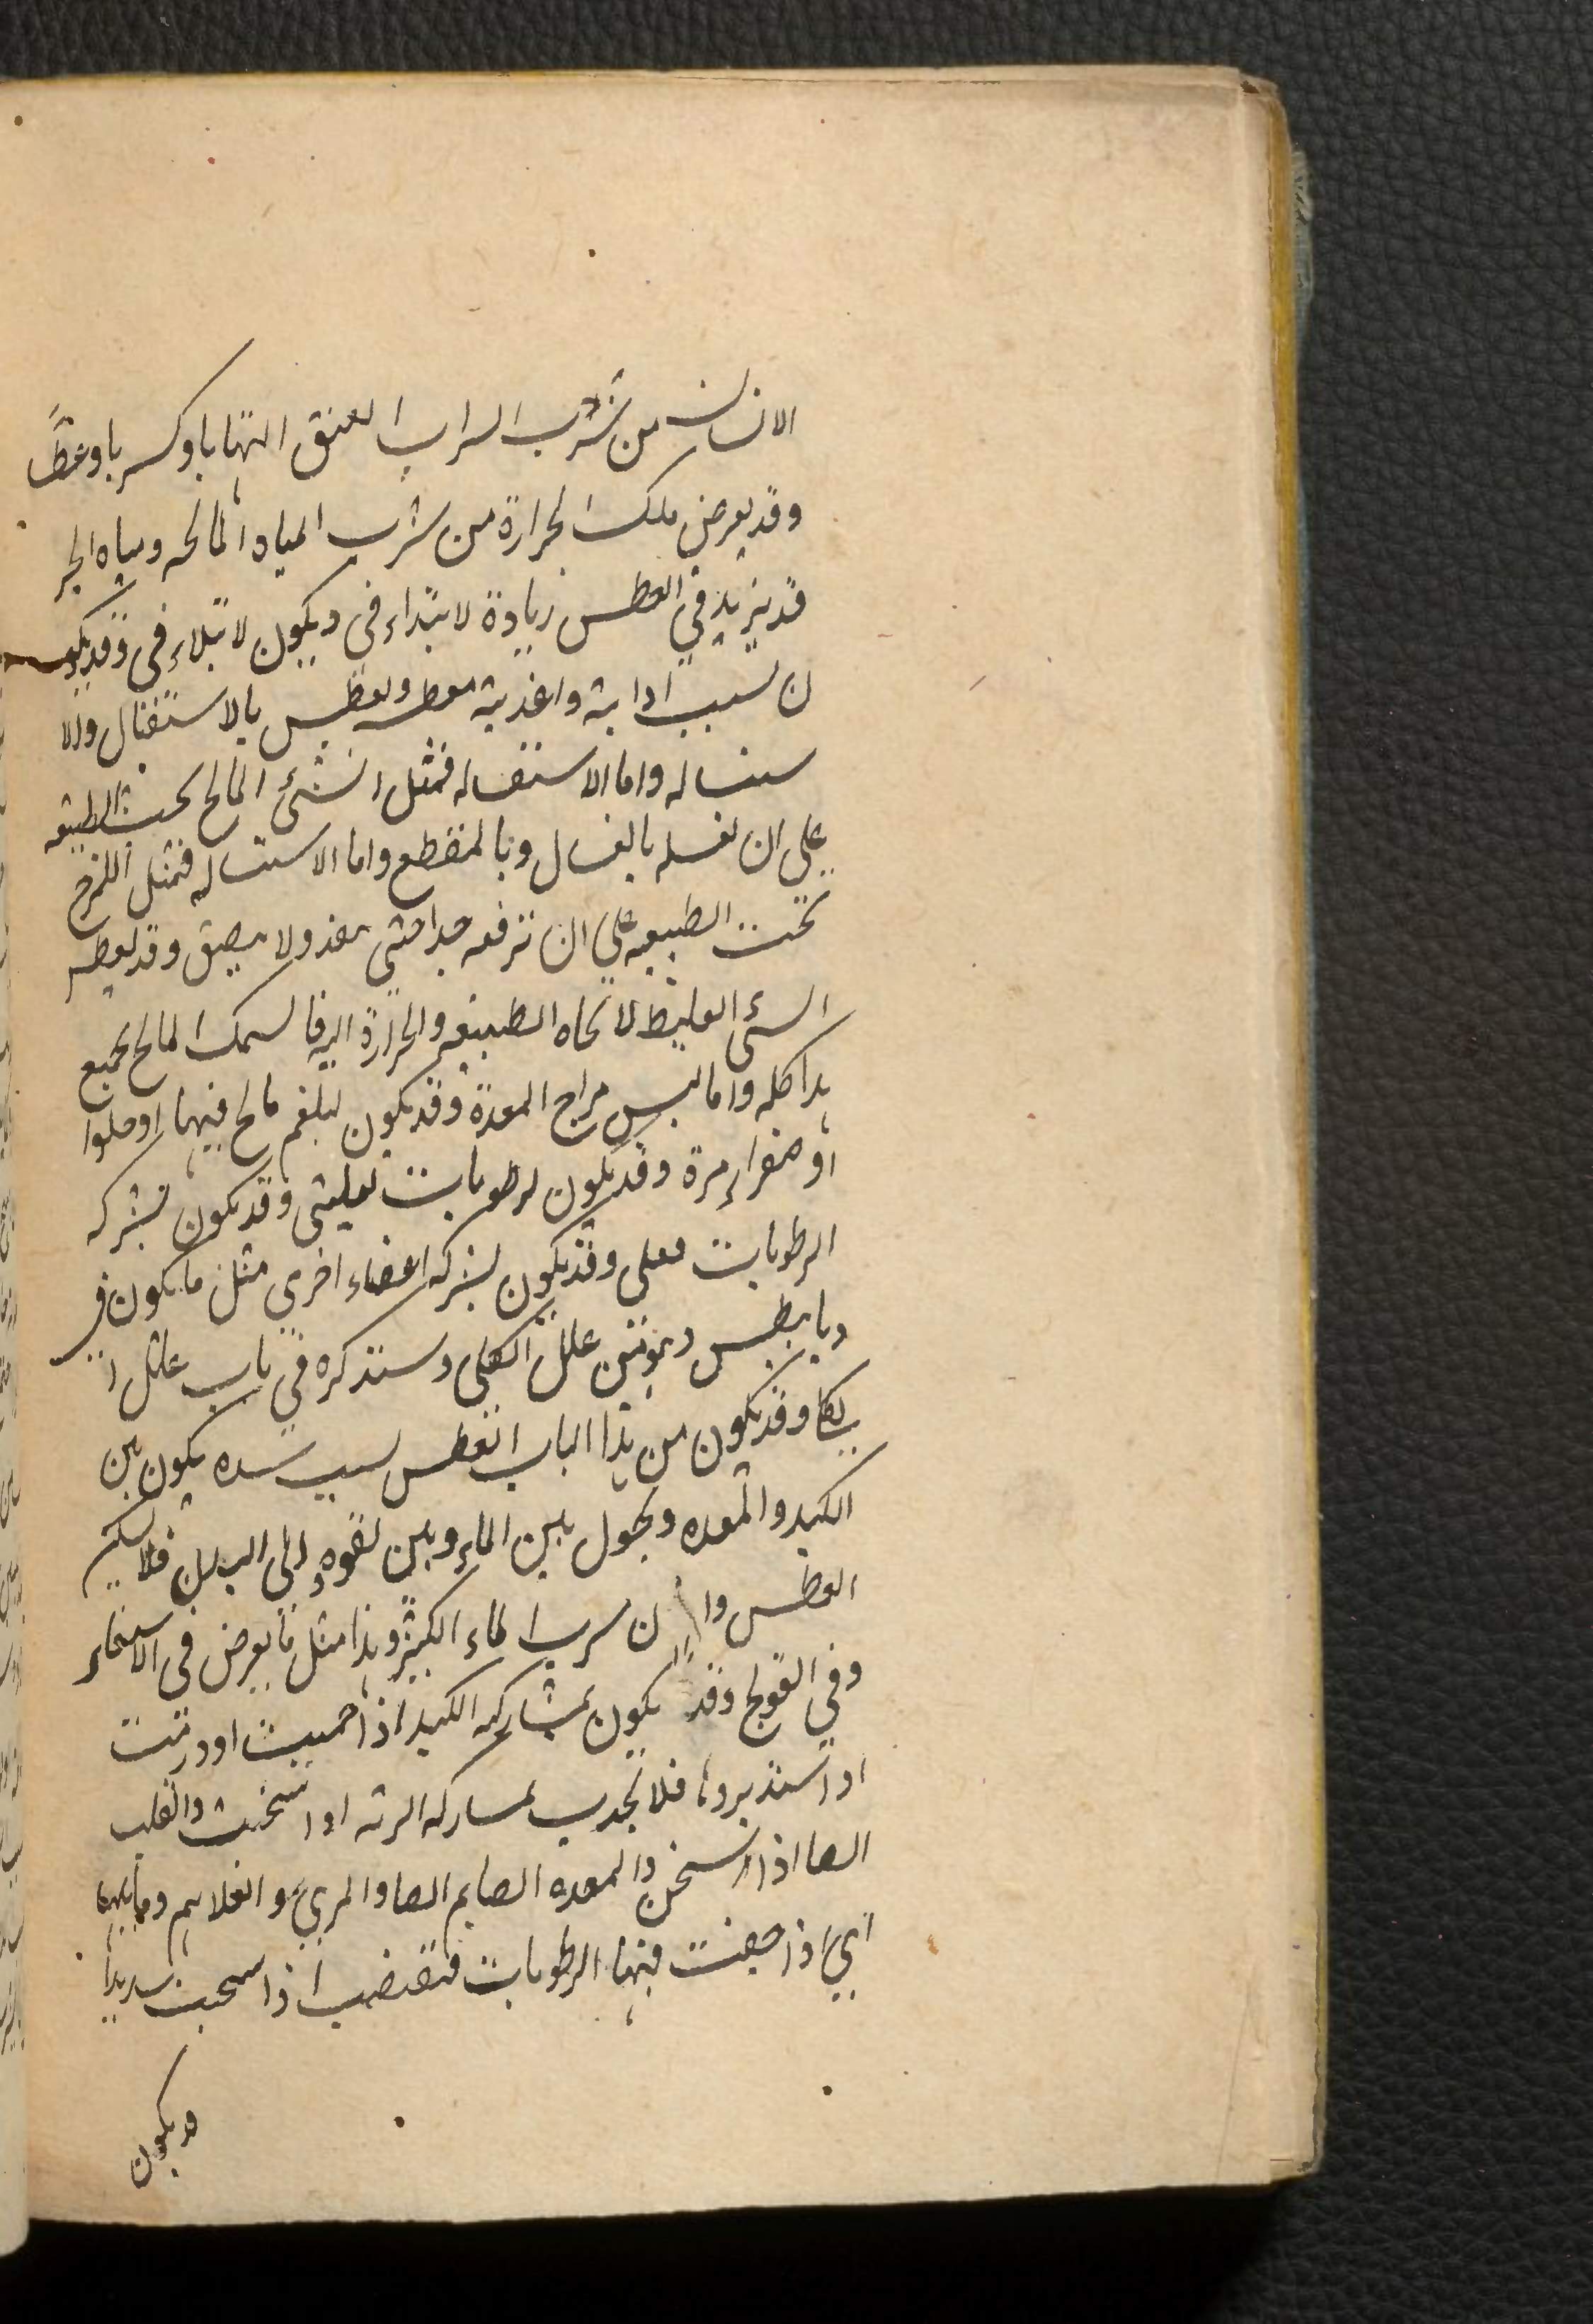 الانسان من شرب الشراب العتيق التهابا وكربا وعطشا
وقد يعرض ملك الحرارة من شرب المياه المالحه ومياه البحر
قد يزيد في العطس زيادة لا يتداء فى ويكون لا يتلاء فى وقد يكو
ن لسبب ادا بة واغذية معطر وتعطس بالاستقبال والا
ستساله واما الاستغساله فمثل الشئ المالح يحث الطبيعه
علي ان تغسله بالغسال وبالمقطع واما الاستساله فمثل اللزج
تحث الطبيعه علي ان ترفعه جدا حتى ينفذ ولا يلصق وقد يعطس
الشئ الغليظ لاتجاه الطبيعه والحرارة اليه فا لسمك المالح يجمع
هذا كله واما ليبس مزاج المعدة وقد يكون لبلغم مالح فيها او حلوا
او صفراء مرة وقد يكون لرطوبات تعليتى وقد يكون بشركه
الرطوبات معلى وقد يكون بشركه اعضاء اخري مثل ما يكون فى
ديابيطس وهو من علل الكلى وسنذكره في باب علل ا
لكلا وقد يكون من هذا الباب العطس لسبب سده يكون بين
الكبد والمعده ويحول بين الماء وبين نفوه الى البدن فلا يسكن
العطس وا ن سرب الماء الكثير وهذا مثل ما يعرض فى الاستسقاء
وفي القولنج وقد يكون بمشاركه الكبد اذا حميت او ورمت
او اشتد بردها فلا تجدب بمساركه الرئه اذا سخنت والقلب
الصا اذا سخن والمعده الصايم الصا والمريئ والغلاصم وما يليها
آبي اذا جفت فيها الرطوبات فتقضب اذا سخنت شديدا
وقد يكون